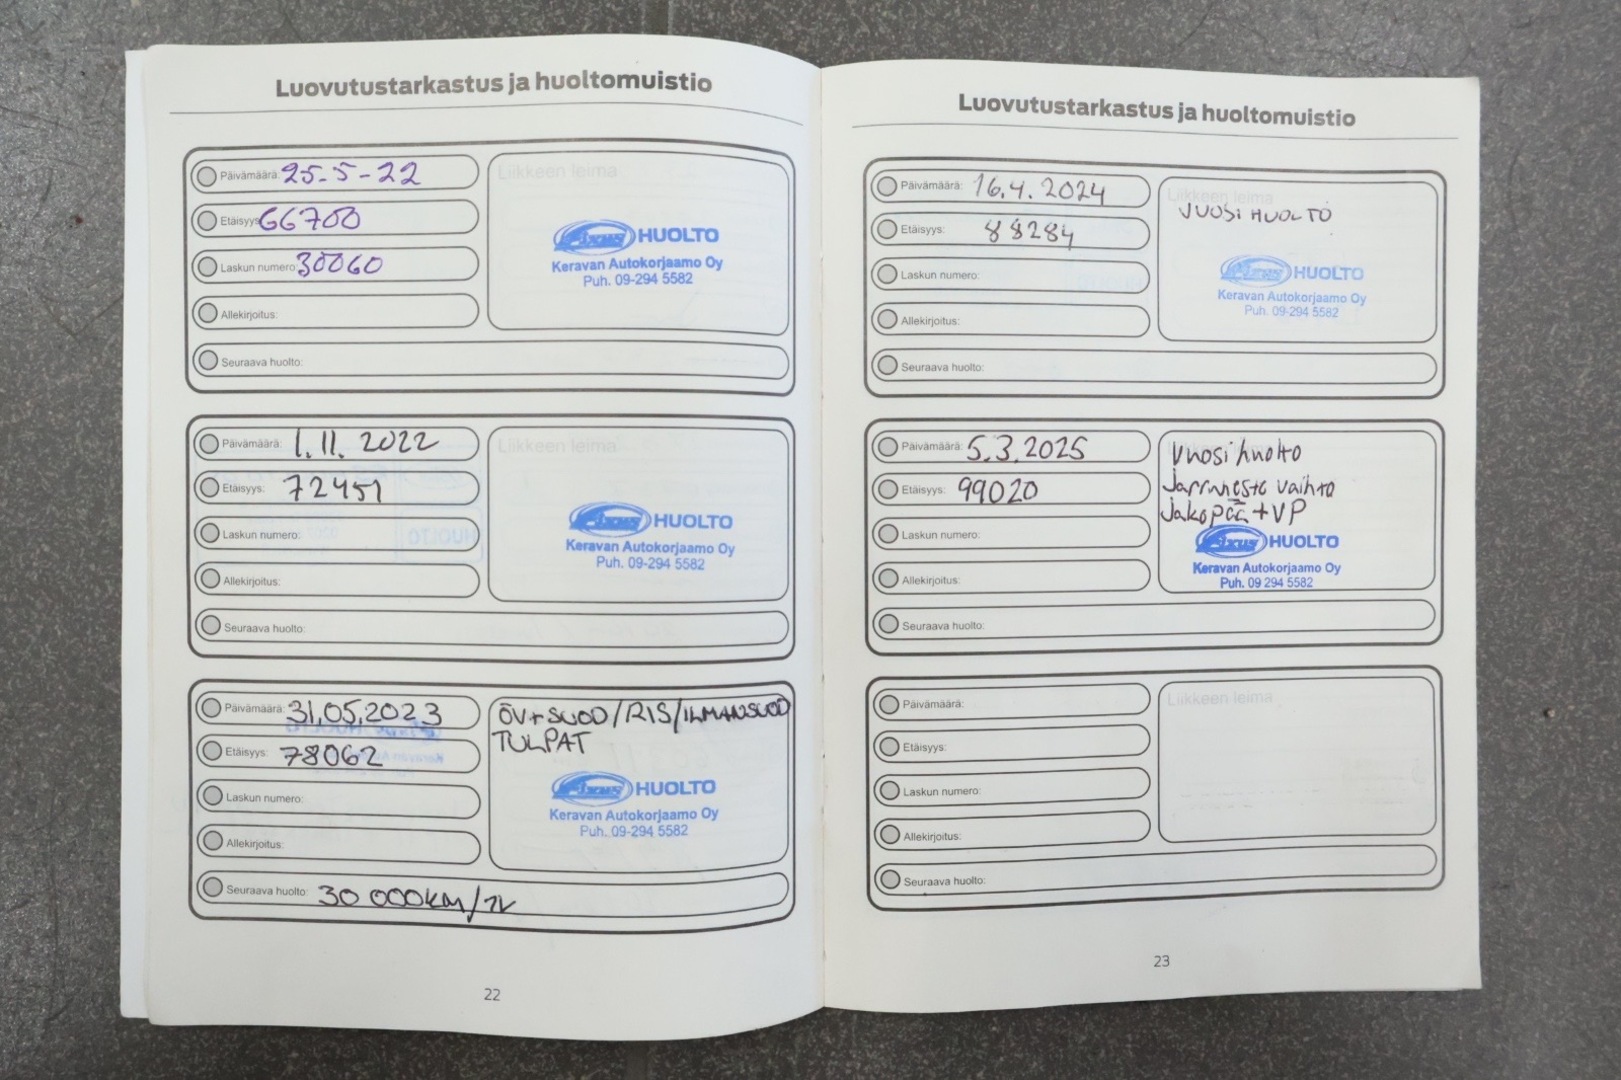 Luovutustarkastus ja huoltomuistio
Päivämäärä: 25-5-22
Etäisyys: 66700
Laskun numero: 30060
Allekirjoitus:
Seuraava huolto:
Liikkeen leima
Fixus HUOLTO
Keravan Autokorjaamo Oy
Puh. 09-294 5582
Päivämäärä: 1.11.2022
Etäisyys: 72451
Laskun numero:
Allekirjoitus:
Seuraava huolto:
Liikkeen leima
Fixus HUOLTO
Keravan Autokorjaamo Oy
Puh. 09-294 5582
Päivämäärä: 31.05.2023
Etäisyys: 78062
Laskun numero:
Allekirjoitus:
Seuraava huolto: 30 000km/1V
ÖV+SUOD/RIS/ILMANSUOD
TULPAT
Fixus HUOLTO
Keravan Autokorjaamo Oy
Puh. 09-294 5582
22
Luovutustarkastus ja huoltomuistio
Päivämäärä: 16.4.2024
Etäisyys: 88284
Laskun numero:
Allekirjoitus:
Seuraava huolto:
Liikkeen leima
VUOSI HUOLTO
Fixus HUOLTO
Keravan Autokorjaamo Oy
Puh. 09-294 5582
Päivämäärä: 5.3.2025
Etäisyys: 99020
Laskun numero:
Allekirjoitus:
Seuraava huolto:
Vuosi huolto
Jarruneste vaihto
Jakopää+VP
Fixus HUOLTO
Keravan Autokorjaamo Oy
Puh. 09 294 5582
Päivämäärä:
Etäisyys:
Laskun numero:
Allekirjoitus:
Seuraava huolto:
Liikkeen leima
23